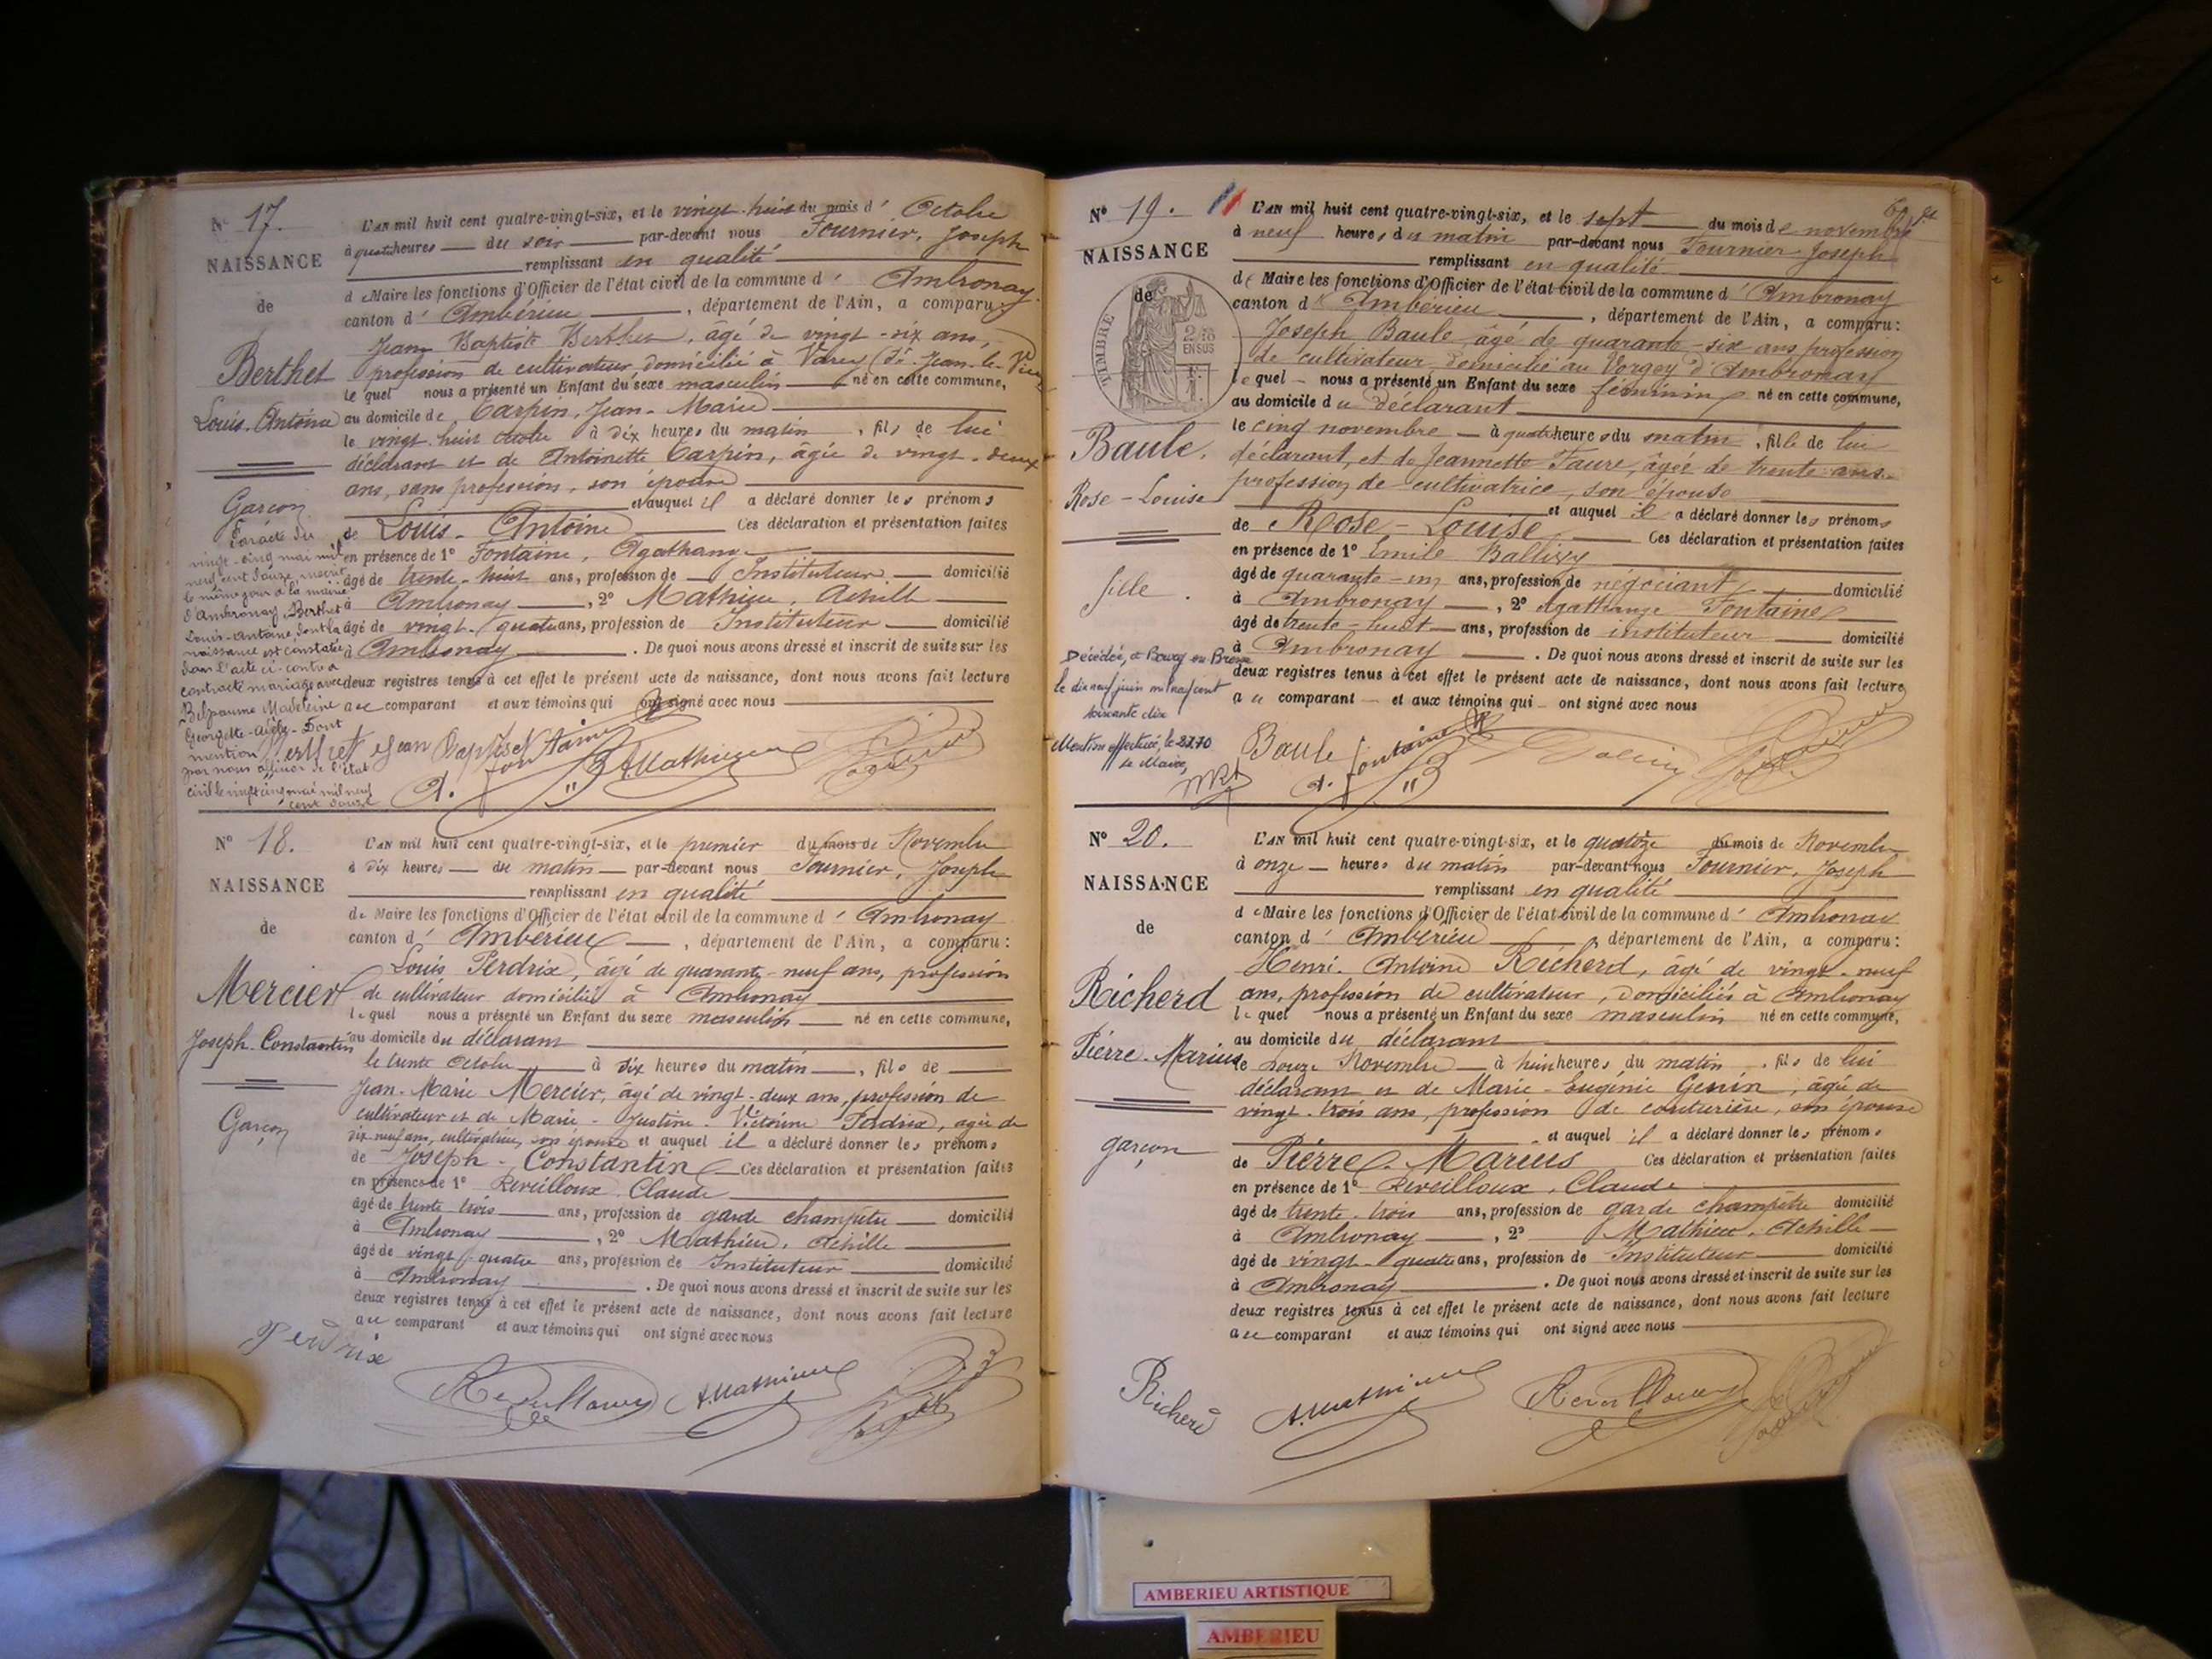 N° 17.
NAISSANCE
de
Berthet
Louis-Antoine
Garçon
Par acte du
vingt-cinq mai mil
neuf cent douze, inscrit
le même jour à la mairie
d'Ambronay, Berthet
Louis-Antoine, dont la
naissance est constatée
dans l'acte ci-contre a
contracté mariage avec
Belpaume Madeleine
Georgette-Adèle - Dont
mention
par nous officier de l'état
civil le vingt cinq mai mil neuf
cent douze
L'AN mil huit cent quatre-vingt-six, et le vingt-huit du mois d' Octobre
à quatre heures du soir par-devant nous Fournier, Joseph
remplissant en qualité
de Maire les fonctions d'Officier de l'état civil de la commune d' Ambronay
canton d' Ambérieu, département de l'Ain, a comparu:
Jean Baptiste Berthet, âgé de vingt-six ans,
profession de cultivateur domicilié à Varey (St Jean-le-Vieux
lequel nous a présenté un Enfant du sexe masculin né en cette commune,
au domicile de Carpin, Jean-Marie
le vingt-huit octobre à dix heures du matin, fils de lui
déclarant et de Antoinette Carpin, âgée de vingt-deux
ans, sans profession, son épouse
et auquel il a déclaré donner les prénoms
de Louis-Antoine Ces déclaration et présentation faites
en présence de 1° Fontaine, Agathange
âgé de trente-huit ans, profession de Instituteur domicilié
à Ambronay, 2° Mathieu, Achille
âgé de vingt-quatre ans, profession de Instituteur domicilié
à Ambronay. De quoi nous avons dressé et inscrit de suite sur les
deux registres tenus à cet effet le présent acte de naissance, dont nous avons fait lecture
au comparant et aux témoins qui ont signé avec nous
Berthet Jean Baptiste A. Fontaine A Mathieu
N° 18.
NAISSANCE
de
Mercier
Joseph-Constantin
Garçon
L'AN mil huit cent quatre-vingt-six, et le premier du mois de Novembre
à dix heures du matin par-devant nous Fournier, Joseph
remplissant en qualité
de Maire les fonctions d'Officier de l'état civil de la commune d' Ambronay
canton d' Ambérieu, département de l'Ain, a comparu:
Louis Perdrix, âgé de quarante-neuf ans, profession
de cultivateur domicilié à Ambronay
lequel nous a présenté un Enfant du sexe masculin né en cette commune,
au domicile du déclarant
le trente Octobre à six heures du matin, fils de
Jean-Marie Mercier, âgé de vingt-deux ans, profession de
cultivateur et de Marie-Justine-Victorine Perdrix, âgée de
dix neuf ans, cultivatrice, son épouse et auquel il a déclaré donner les prénoms
de Joseph-Constantin Ces déclaration et présentation faites
en présence de 1° Reveilloux Claude
âgé de trente trois ans, profession de garde champêtre domicilié
à Ambronay, 2° Mathieu, Achille
âgé de vingt-quatre ans, profession de Instituteur domicilié
à Ambronay. De quoi nous avons dressé et inscrit de suite sur les
deux registres tenus à cet effet le présent acte de naissance, dont nous avons fait lecture
au comparant et aux témoins qui ont signé avec nous
Perdrix
Reveilloux A. Mathieu
N° 19.
NAISSANCE
de
TIMBRE
EN SUS
Baule.
Rose-Louise
fille.
Décédée, à Bourg en Bresse
le dix neuf juin mil neuf cent
soixante dix
Mention effectuée, le
Le Maire,
L'AN mil huit cent quatre-vingt-six, et le sept du mois de novembre
à neuf heures du matin par-devant nous Fournier Joseph
remplissant en qualité
de Maire les fonctions d'Officier de l'état civil de la commune d' Ambronay
canton d' Ambérieu, département de l'Ain, a comparu:
Joseph Baule âgé de quarante-six ans profession
de cultivateur domicilié au Vorgey d'Ambronay
lequel nous a présenté un Enfant du sexe féminin né en cette commune,
au domicile du déclarant
le cinq novembre à quatre heures du matin, fille de lui
déclarant, et de Jeannette Faure, âgée de trente ans
profession de cultivatrice, son épouse
et auquel il a déclaré donner les prénoms
de Rose-Louise Ces déclaration et présentation faites
en présence de 1° Emile Ballivy
âgé de quarante-un ans, profession de négociant domicilié
à Ambronay, 2° Agathange Fontaine
âgé de trente-huit ans, profession de instituteur domicilié
à Ambronay. De quoi nous avons dressé et inscrit de suite sur les
deux registres tenus à cet effet le présent acte de naissance, dont nous avons fait lecture
au comparant et aux témoins qui ont signé avec nous
Baule A. Fontaine
N° 20.
NAISSANCE
de
Richerd
Pierre-Marius
garçon
L'AN mil huit cent quatre-vingt-six, et le quatorze du mois de Novembre
à onze heures du matin par-devant nous Fournier, Joseph
remplissant en qualité
de Maire les fonctions d'Officier de l'état civil de la commune d' Ambronay
canton d' Ambérieu, département de l'Ain, a comparu:
Henri-Antoine Richerd, âgé de vingt-neuf
ans, profession de cultivateur, domicilié à Ambronay
lequel nous a présenté un Enfant du sexe masculin né en cette commune,
au domicile du déclarant
le douze Novembre à huit heures du matin, fils de lui
déclarant et de Marie-Eugénie Genin, âgée de
vingt-trois ans, profession de couturière, son épouse
et auquel il a déclaré donner les prénoms
de Pierre-Marius Ces déclaration et présentation faites
en présence de 1° Reveilloux, Claude
âgé de trente-trois ans, profession de garde champêtre domicilié
à Ambronay, 2° Mathieu, Achille
âgé de vingt-quatre ans, profession de Instituteur domicilié
à Ambronay. De quoi nous avons dressé et inscrit de suite sur les
deux registres tenus à cet effet le présent acte de naissance, dont nous avons fait lecture
au comparant et aux témoins qui ont signé avec nous
Richerd A. Mathieu Reveilloux
AMBERIEU ARTISTIQUE
AMBERIEU